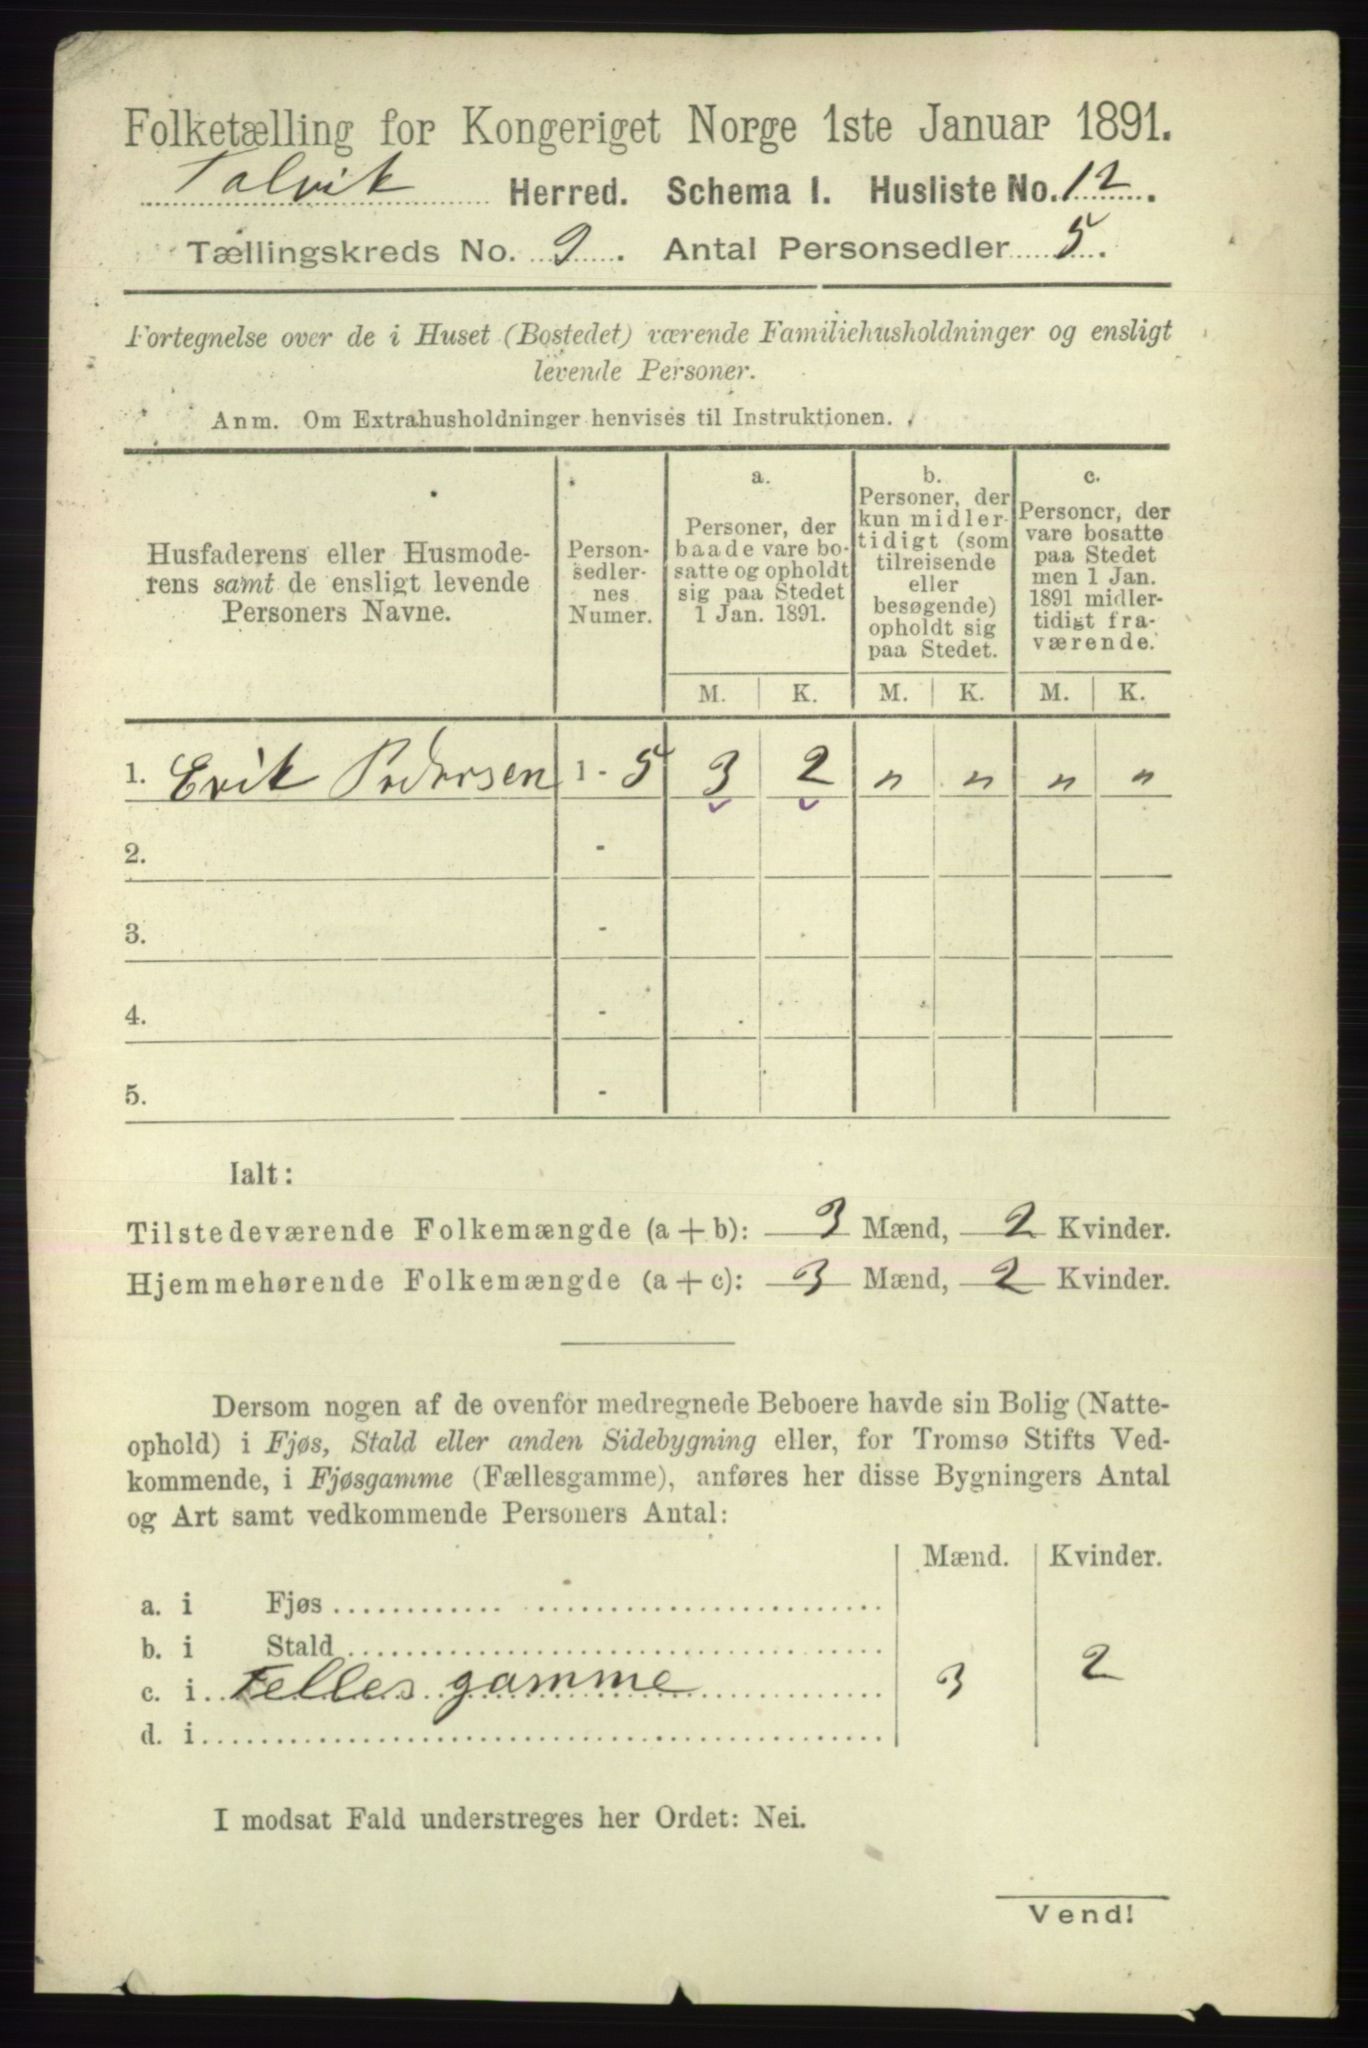 Folketælling for Kongeriget Norge 1ste Januar 1891.
Talvik Herred. Schema I. Husliste No. 12.
Tællingskreds No. 9. Antal Personsedler 5.
Fortegnelse over de i Huset (Bostedet) værende Familiehusholdninger og ensligt
levende Personer.
Anm. Om Extrahusholdninger henvises til Instruktionen.
Husfaderens eller Husmode-
rens samt de ensligt levende
Personers Navne.
Person-
sedler-
nes
Numer.
a.
Personer, der
baade vare bo-
satte og opholdt
sig paa Stedet
1 Jan. 1891.
b.
Personer, der
kun midler-
tidigt (som
tilreisende
eller
besøgende)
opholdt sig
paa Stedet.
c.
Personer, der
vare bosatte
paa Stedet
men 1 Jan.
1891 midler-
tidigt fra-
værende.
M. K. M. K. M. K.
1. Erik Pedersen 1 - 5 3 2 " " " "
2. -
3. -
4. -
5. -
Ialt:
Tilstedeværende Folkemængde (a + b): 3 Mænd, 2 Kvinder.
Hjemmehørende Folkemængde (a + c): 3 Mænd, 2 Kvinder.
Dersom nogen af de ovenfor medregnede Beboere havde sin Bolig (Natte-
ophold) i Fjøs, Stald eller anden Sidebygning eller, for Tromsø Stifts Ved-
kommende, i Fjøsgamme (Fællesgamme), anføres her disse Bygningers Antal
og Art samt vedkommende Personers Antal:
Mænd. Kvinder.
a. i Fjøs
b. i Stald
c. i Felles gamme 3 2
d. i
I modsat Fald understreges her Ordet: Nei.
Vend!